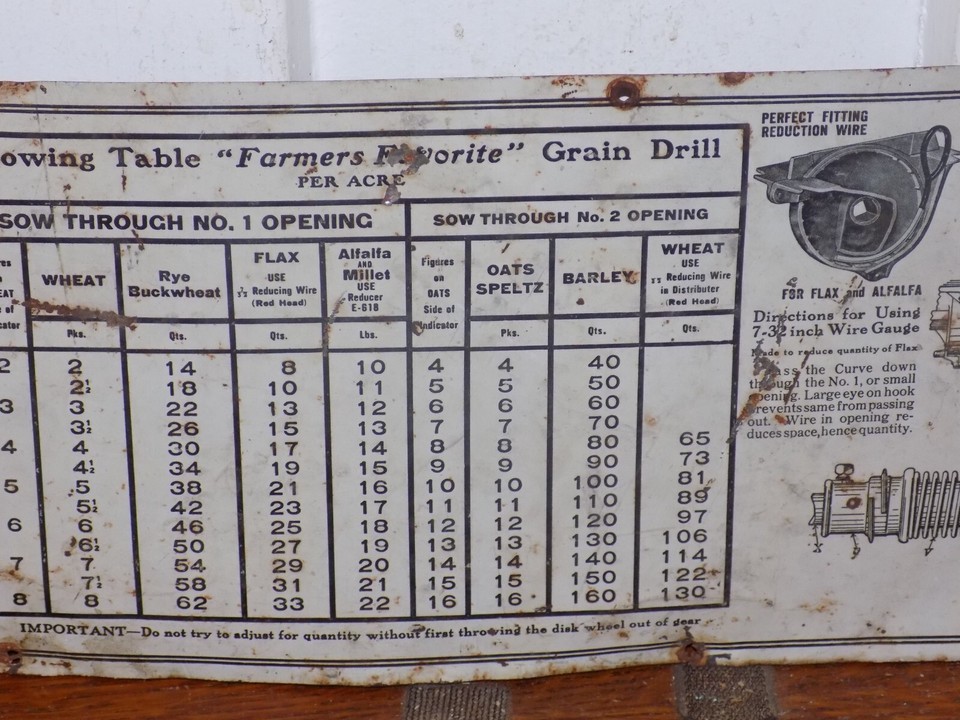 owing Table "Farmers Favorite" Grain Drill
PER ACRE
SOW THROUGH NO. 1 OPENING
SOW THROUGH No. 2 OPENING
res
EAT
e of
cator
WHEAT
Rye
Buckwheat
FLAX
USE
7/32 Reducing Wire
(Red Head)
Alfalfa
AND
Millet
USE
Reducer
E-618
Figures
on
OATS
Side of
Indicator
OATS
SPELTZ
BARLEY
WHEAT
USE
Reducing Wire
in Distributer
(Red Head)
Pks. Qts. Qts. Lbs. Pks. Qts. Qts.
2 2 14 8 10 4 4 40
2½ 18 10 11 5 5 50
3 3 22 13 12 6 6 60
3½ 26 15 13 7 7 70
4 4 30 17 14 8 8 80 65
4½ 34 19 15 9 9 90 73
5 5 38 21 16 10 10 100 81
5½ 42 23 17 11 11 110 89
6 6 46 25 18 12 12 120 97
6½ 50 27 19 13 13 130 106
7 7 54 29 20 14 14 140 114
7½ 58 31 21 15 15 150 122
8 8 62 33 22 16 16 160 130
IMPORTANT—Do not try to adjust for quantity without first throwing the disk wheel out of gear
PERFECT FITTING
REDUCTION WIRE
FOR FLAX and ALFALFA
Directions for Using
7-32 inch Wire Gauge
Made to reduce quantity of Flax
Pass the Curve down
through the No. 1, or small
opening. Large eye on hook
prevents same from passing
out. Wire in opening re-
duces space, hence quantity.
X